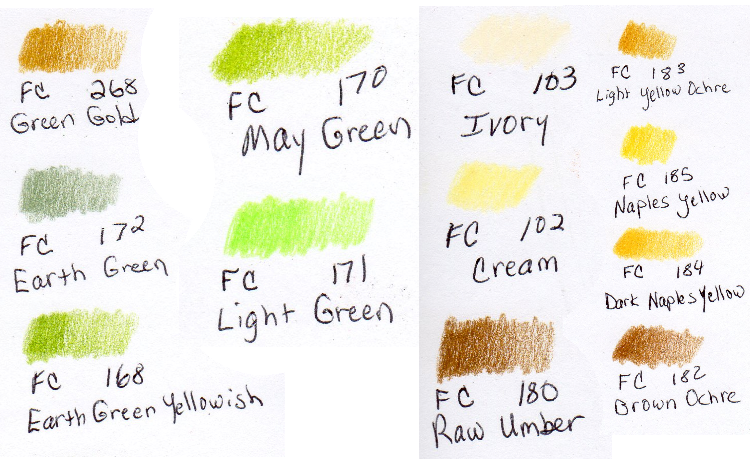 FC 268
Green Gold
FC 172
Earth Green
FC 168
Earth Green Yellowish
FC 170
May Green
FC 171
Light Green
FC 103
Ivory
FC 102
Cream
FC 180
Raw Umber
FC 183
Light Yellow Ochre
FC 185
Naples Yellow
FC 184
Dark Naples Yellow
FC 182
Brown Ochre